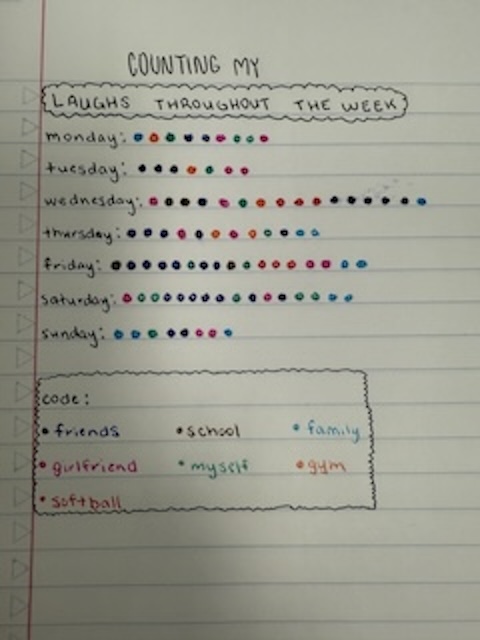 COUNTING MY
LAUGHS THROUGHOUT THE WEEK
monday:
tuesday:
wednesday:
thursday:
friday:
saturday:
sunday:
code:
• friends • school • family
• girlfriend • myself • gym
• softball